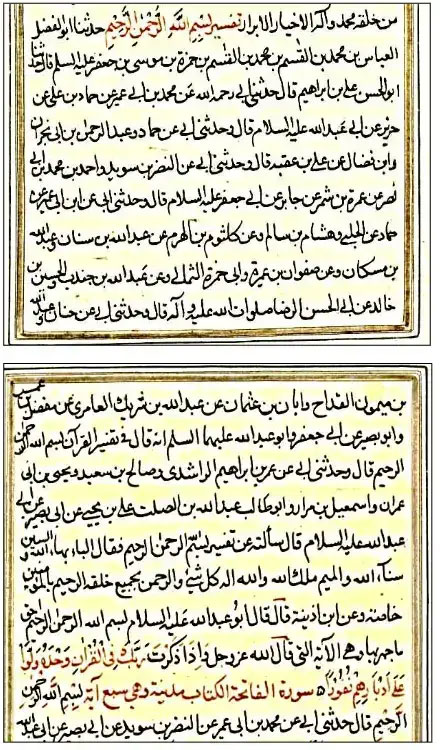 من خلقه محمد وآله الاخيار الابرار تفسير بسم الله الرحمن الرحيم حدثنا ابو الفضل
العباس بن محمد بن القسم بن محمد بن القسم بن حمزة بن موسى بن جعفر عليه السلام قال حدثنا
ابو الحسن علي بن ابراهيم قال حدثني ابي رحمه الله عن محمد بن ابي عمير عن حماد بن عيسى عن
حريز عن ابي عبد الله عليه السلام قال وحدثني ابي عن حماد وعبد الرحمن بن ابي نجران
وابن فضال عن علي بن عقبه قال وحدثني ابي عن النضر بن سويد واحمد بن محمد بن ابي
نصر عن عمرو بن شمر عن جابر عن ابي جعفر عليه السلام قال وحدثني ابي عن ابن ابي عمير عن
حماد عن الحلبي وهشام بن سالم وعن كلثوم بن الهرم عن عبد الله بن سنان وعبد الله
بن مسكان وعن صفوان بن عميرة وابي حمزة الثمالي وعن عبد الله بن جندب والحسين بن
خالد عن ابي الحسن الرضا صلوات الله عليه وآله قال وحدثني ابي عن حنان وعبد الله
بن ميمون القداح وابان بن عثمان عن عبد الله بن شريك العامري عن مفضل بن عمر
وابو بصير عن ابي جعفر وابو عبد الله عليهما السلم انه قال في تفسير القرآن بسم الله الرحمن
الرحيم قال وحدثني ابي عن عمر بن ابراهيم الراشدي وصالح بن سعيد ويحيى بن ابي
عمران واسمعيل بن مرار وابو طالب عبد الله بن الصلت علي بن يحيى عن ابي بصير عن ابي
عبد الله عليه السلام قال سالته عن تفسير بسم الله الرحمن الرحيم فقال الباء بهاء الله والسين
سناء الله والميم ملك الله والله اله كل شيء والرحمن بجميع خلقه الرحيم بالمؤمنين
خاصة وعن ابن اذينة قال قال ابو عبد الله عليه السلام بسم الله الرحمن الرحيم احق
ما جهر بها وهي الآية التي قال الله عز وجل واذا ذكرت ربك في القرآن وحده ولوا
على ادبارهم نفورا سورة الفاتحة الكتاب مدنية وهي سبع آية بسم الله الرحمن
الرحيم قال حدثني ابي عن محمد بن ابي عمير عن النضر بن سويد عن ابي بصير عن ابي عبد الله